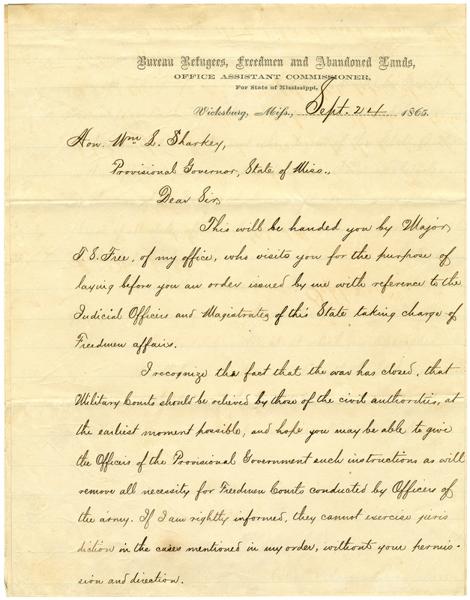 Bureau Refugees, Freedmen and Abandoned Lands,
OFFICE ASSISTANT COMMISSIONER,
For State of Mississippi,
Vicksburg, Miss., Sept. 24 1865.
Hon. Wm L. Sharkey,
Provisional Governor, State of Miss.,
Dear Sir,
This will be handed you by Major
T. S. Free, of my office, who visits you for the purpose of
laying before you an order issued by me with reference to the
Judicial Officers and Magistrates of this State taking charge of
Freedmen affairs.
I recognize the fact that the war has closed, that
Military Courts should be relieved by those of the civil authorities, at
the earliest moment possible, and hope you may be able to give
the Officers of the Provisional Government such instructions as will
remove all necessity for Freedmen Courts conducted by Officers of
the army. If I am rightly informed, they cannot exercise juris
diction in the cases mentioned in my order, without your permis-
sion and direction.